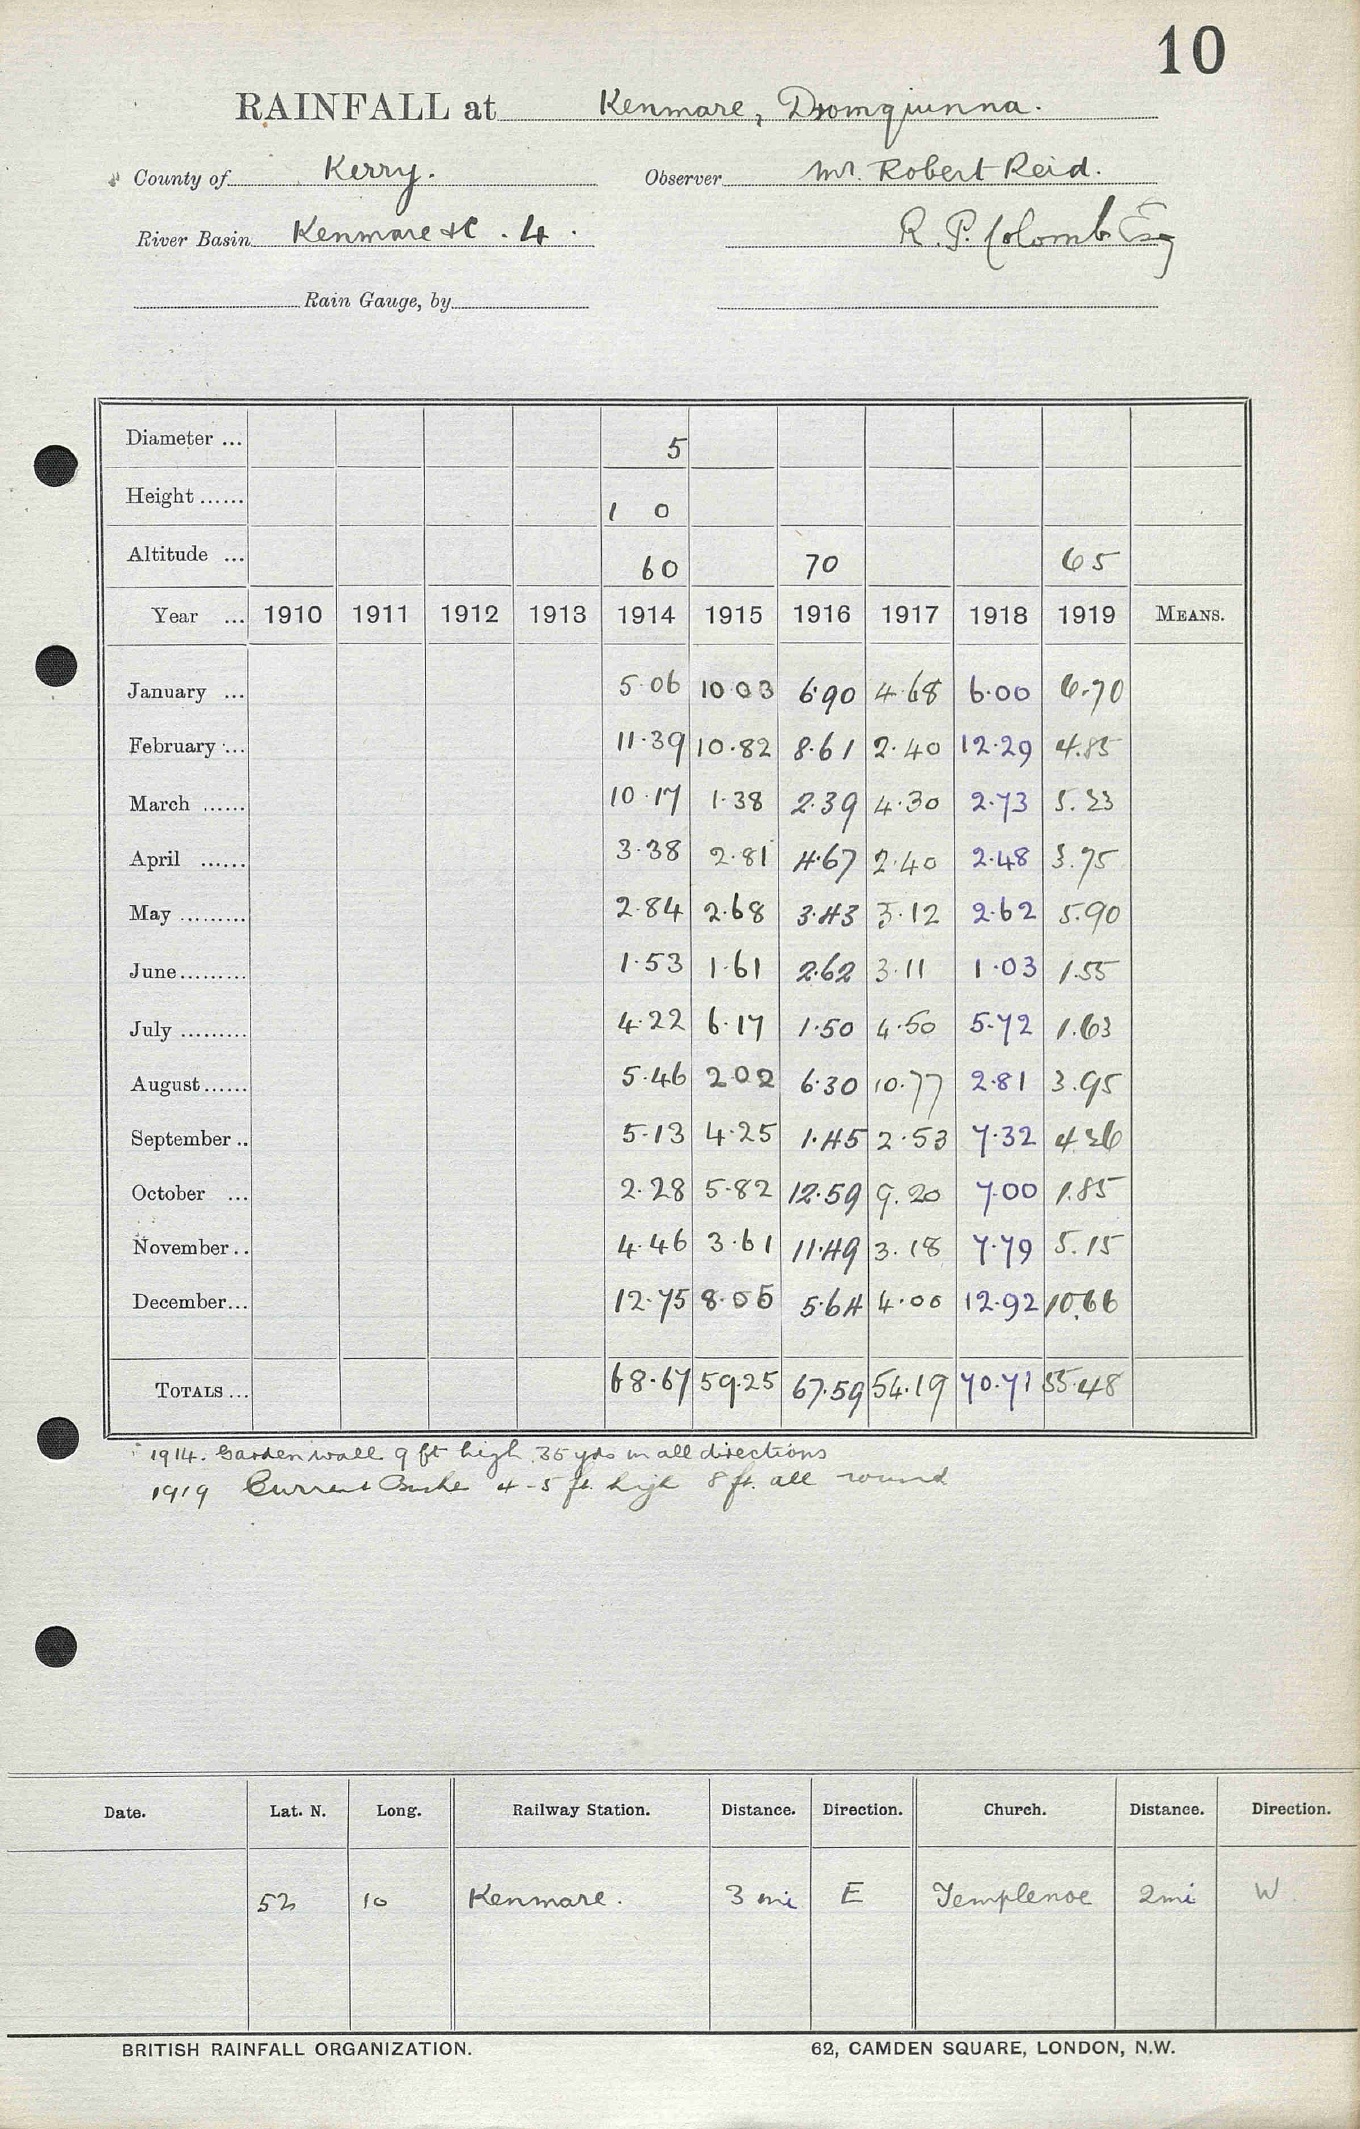 10
RAINFALL at Kenmare, Dromquinna.
County of Kerry. Observer Mr. Robert Reid.
River Basin Kenmare &c. 4. R. P. Colomb Esq
Rain Gauge, by
Diameter ... 5
Height ...... 1 0
Altitude ... 60 70 65
Year ... 1910 1911 1912 1913 1914 1915 1916 1917 1918 1919 MEANS.
January ... 5.06 10.03 6.90 4.68 6.00 6.70
February ... 11.39 10.82 8.61 2.40 12.29 4.85
March ...... 10.17 1.38 2.39 4.30 2.73 5.23
April ...... 3.38 2.81 4.67 2.40 2.48 3.75
May ......... 2.84 2.68 3.43 3.12 2.62 5.90
June ......... 1.53 1.61 2.62 3.11 1.03 1.55
July ......... 4.22 6.17 1.50 4.50 5.72 1.63
August ...... 5.46 2.02 6.30 10.77 2.81 3.95
September .. 5.13 4.25 1.45 2.53 7.32 4.26
October ... 2.28 5.82 12.59 9.20 7.00 1.85
November .. 4.46 3.61 11.49 3.18 7.79 5.15
December ... 12.75 8.05 5.64 4.00 12.92 10.66
TOTALS ... 68.67 59.25 67.59 54.19 70.71 55.48
1914. Garden wall 9 ft high 35 yds in all directions
1919 Currant Bushes 4-5 ft. high 8 ft. all round
Date. Lat. N. Long. Railway Station. Distance. Direction. Church. Distance. Direction.
52 10 Kenmare. 3 mi E Templenoe 2mi W.
BRITISH RAINFALL ORGANIZATION. 62, CAMDEN SQUARE, LONDON, N.W.